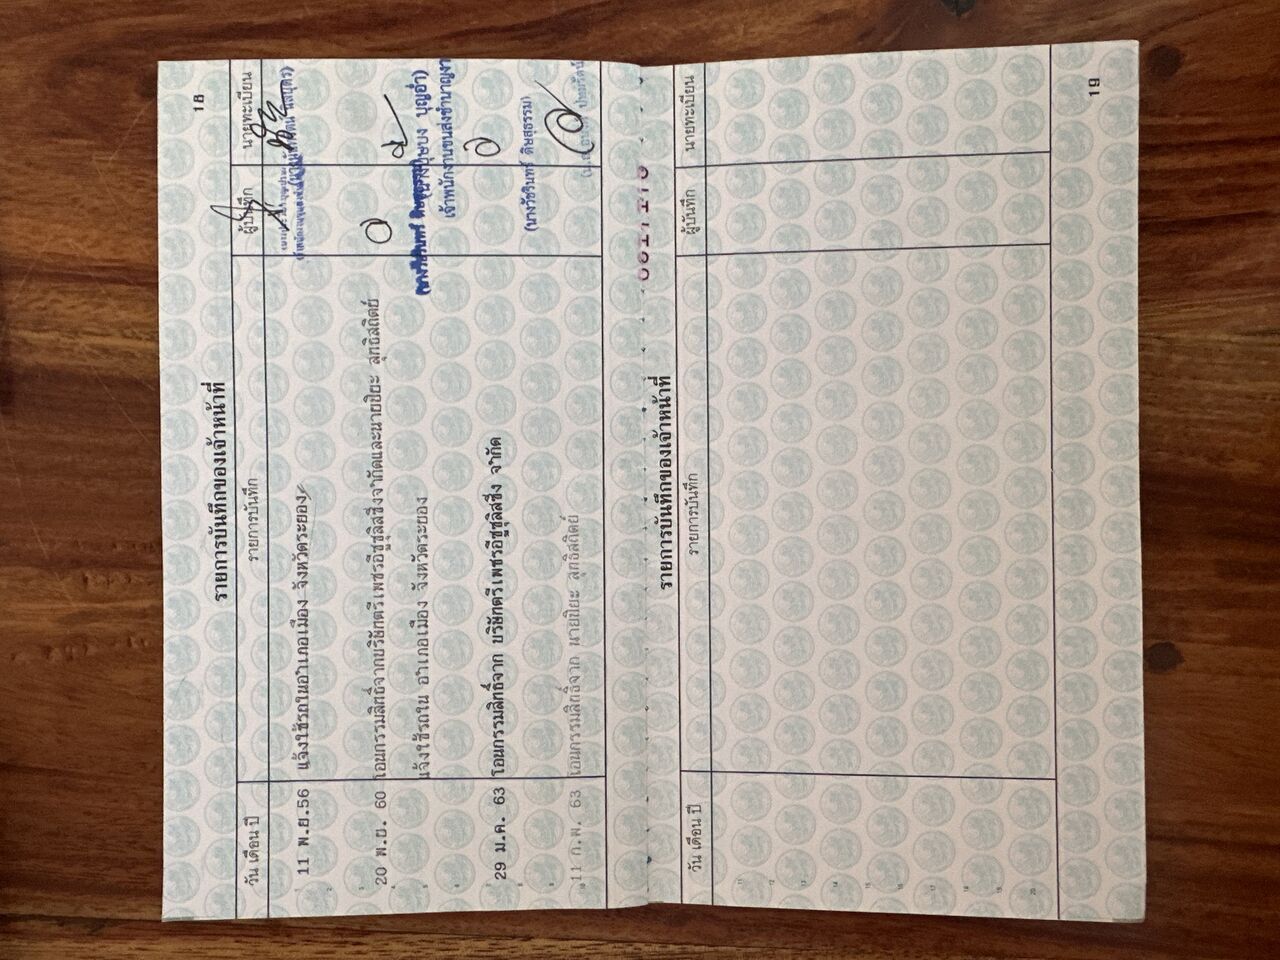 18
รายการบันทึกของเจ้าหน้าที่
วัน เดือน ปี รายการบันทึก ผู้บันทึก นายทะเบียน
1 11 พ.ย.56 แจ้งใช้รถในอำเภอเมือง จังหวัดระยอง
2
3
20 พ.ย. 60 โอนกรรมสิทธิ์จากบริษัทตรีเพชรอีซูซุลิสซิ่งจำกัดและนายปิยะ สุทธิสถิตย์
4
5 แจ้งใช้รถใน อำเภอเมือง จังหวัดระยอง
บุญอ่ำ)
6 เจ้าพนักงานขนส่งชำนาญงา
7 29 ม.ค. 63 โอนกรรมสิทธิ์จาก บริษัทตรีเพชรอีซูซุลิสซิ่ง จำกัด
8 (นางวัชรินทร์ ดิษสุธรรม)
9
10 11 ก.พ. 63 โอนกรรมสิทธิ์จาก นายปิยะ สุทธิสถิตย์
รายการบันทึกของเจ้าหน้าที่
วัน เดือน ปี รายการบันทึก ผู้บันทึก นายทะเบียน
11
12
13
14
15
16
17
18
19
20
19